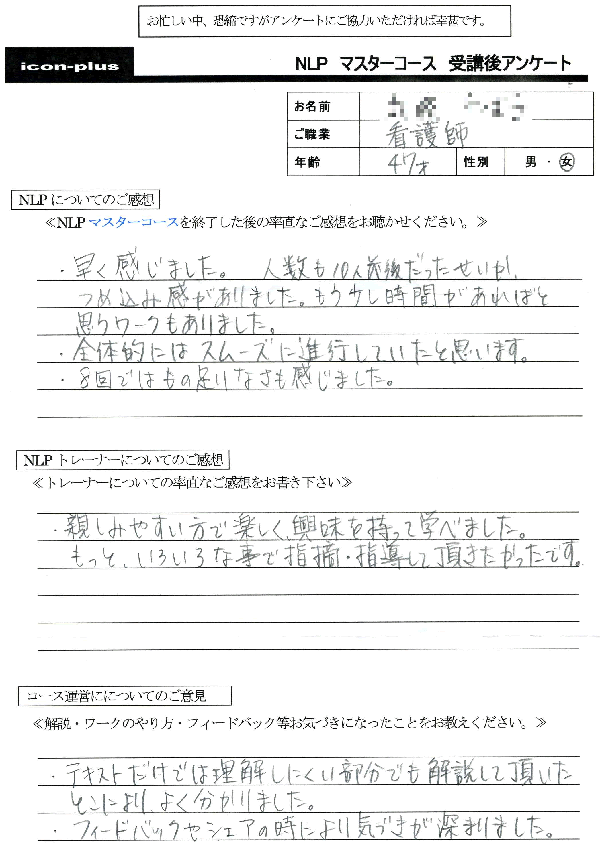 お忙しい中、恐縮ですがアンケートにご協力いただければ幸甚です。
icon-plus
NLP マスターコース 受講後アンケート
お名前
ご職業 看護師
年齢 47才 性別 男・女
NLPについてのご感想
≪NLPマスターコースを終了した後の率直なご感想をお聴かせください。≫
・早く感じました。 人数も10人前後だったせいか、
つめ込み感がありました。もう少し時間があればと
思うワークもありました。
・全体的にはスムーズに進行していたと思います。
・8回ではもの足りなさも感じました。
NLPトレーナーについてのご感想
≪トレーナーについての率直なご感想をお書き下さい≫
・親しみやすい方で楽しく、興味を持って学べました。
もっと、いろいろな事で指摘・指導して頂きたかったです。
コース運営にについてのご意見
≪解説・ワークのやり方・フィードバック等お気づきになったことをお教えください。≫
・テキストだけでは理解しにくい部分でも解説して頂いた
とこにより、よく分かりました。
・フィードバックやシェアの時により気づきが深まりました。